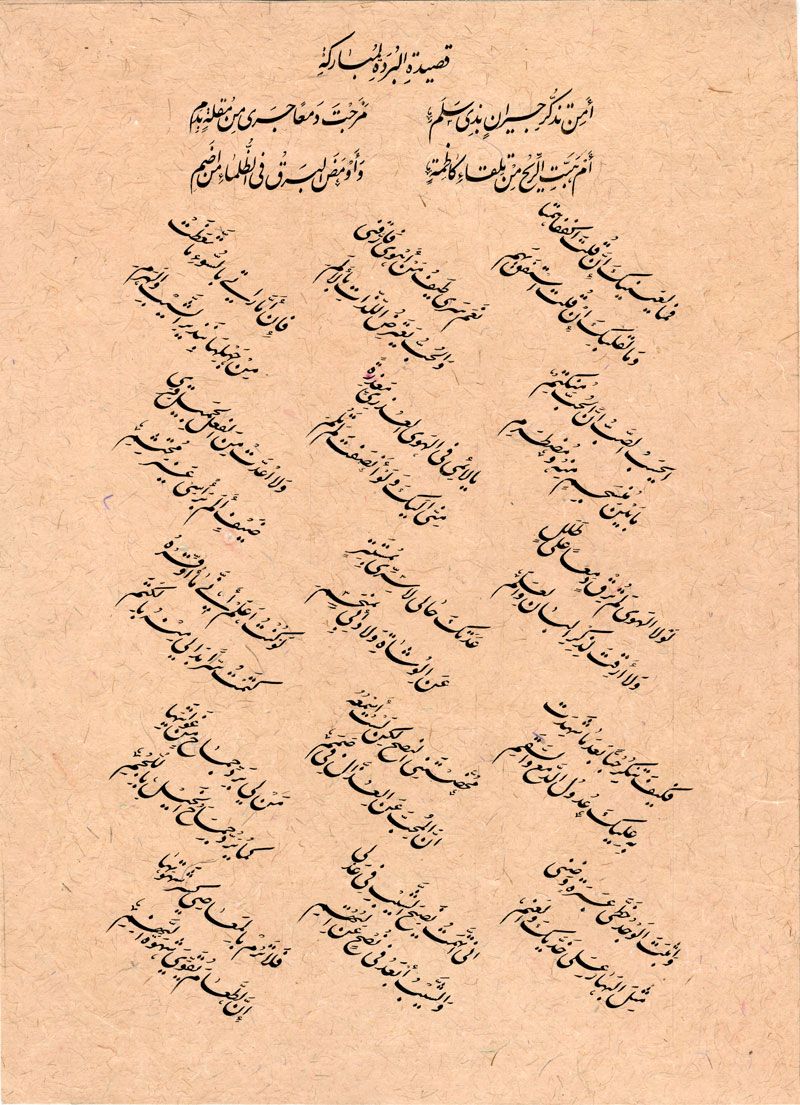 قصيدة البردة المباركة
أمن تذكر جيران بذي سلم
مزجت دمعا جرى من مقلة بدم
أم هبت الريح من تلقاء كاظمة
وأومض البرق في الظلماء من إضم
فما لعينيك إن قلت اكففا همتا
وما لقلبك إن قلت استفق يهم
أيحسب الصب أن الحب منكتم
ما بين منسجم منه ومضطرم
لولا الهوى لم ترق دمعا على طلل
ولا أرقت لذكر البان والعلم
فكيف تنكر حبا بعد ما شهدت
به عليك عدول الدمع والسقم
وأثبت الوجد خطي عبرة وضنى
مثل البهار على خديك والعنم
نعم سرى طيف من أهوى فأرقني
والحب يعترض اللذات بالألم
يا لائمي في الهوى العذري معذرة
مني إليك ولو أنصفت لم تلم
عدتك حالي لا سري بمستتر
عن الوشاة ولا دائي بمنحسم
محضتني النصح لكن لست أسمعه
إن المحب عن العذال في صمم
إني اتهمت نصيح الشيب في عذلي
والشيب أبعد في نصح عن التهم
فإن أمارتي بالسوء ما اتعظت
من جهلها بنذير الشيب والهرم
ولا أعدت من الفعل الجميل قرى
ضيف ألم برأسي غير محتشم
لو كنت أعلم أني ما أوقره
كتمت سرا بدا لي منه بالكتم
من لي برد جماح من غوايتها
كما يرد جماح الخيل باللجم
فلا ترم بالمعاصي كسر شهوتها
إن الطعام يقوي شهوة النهم